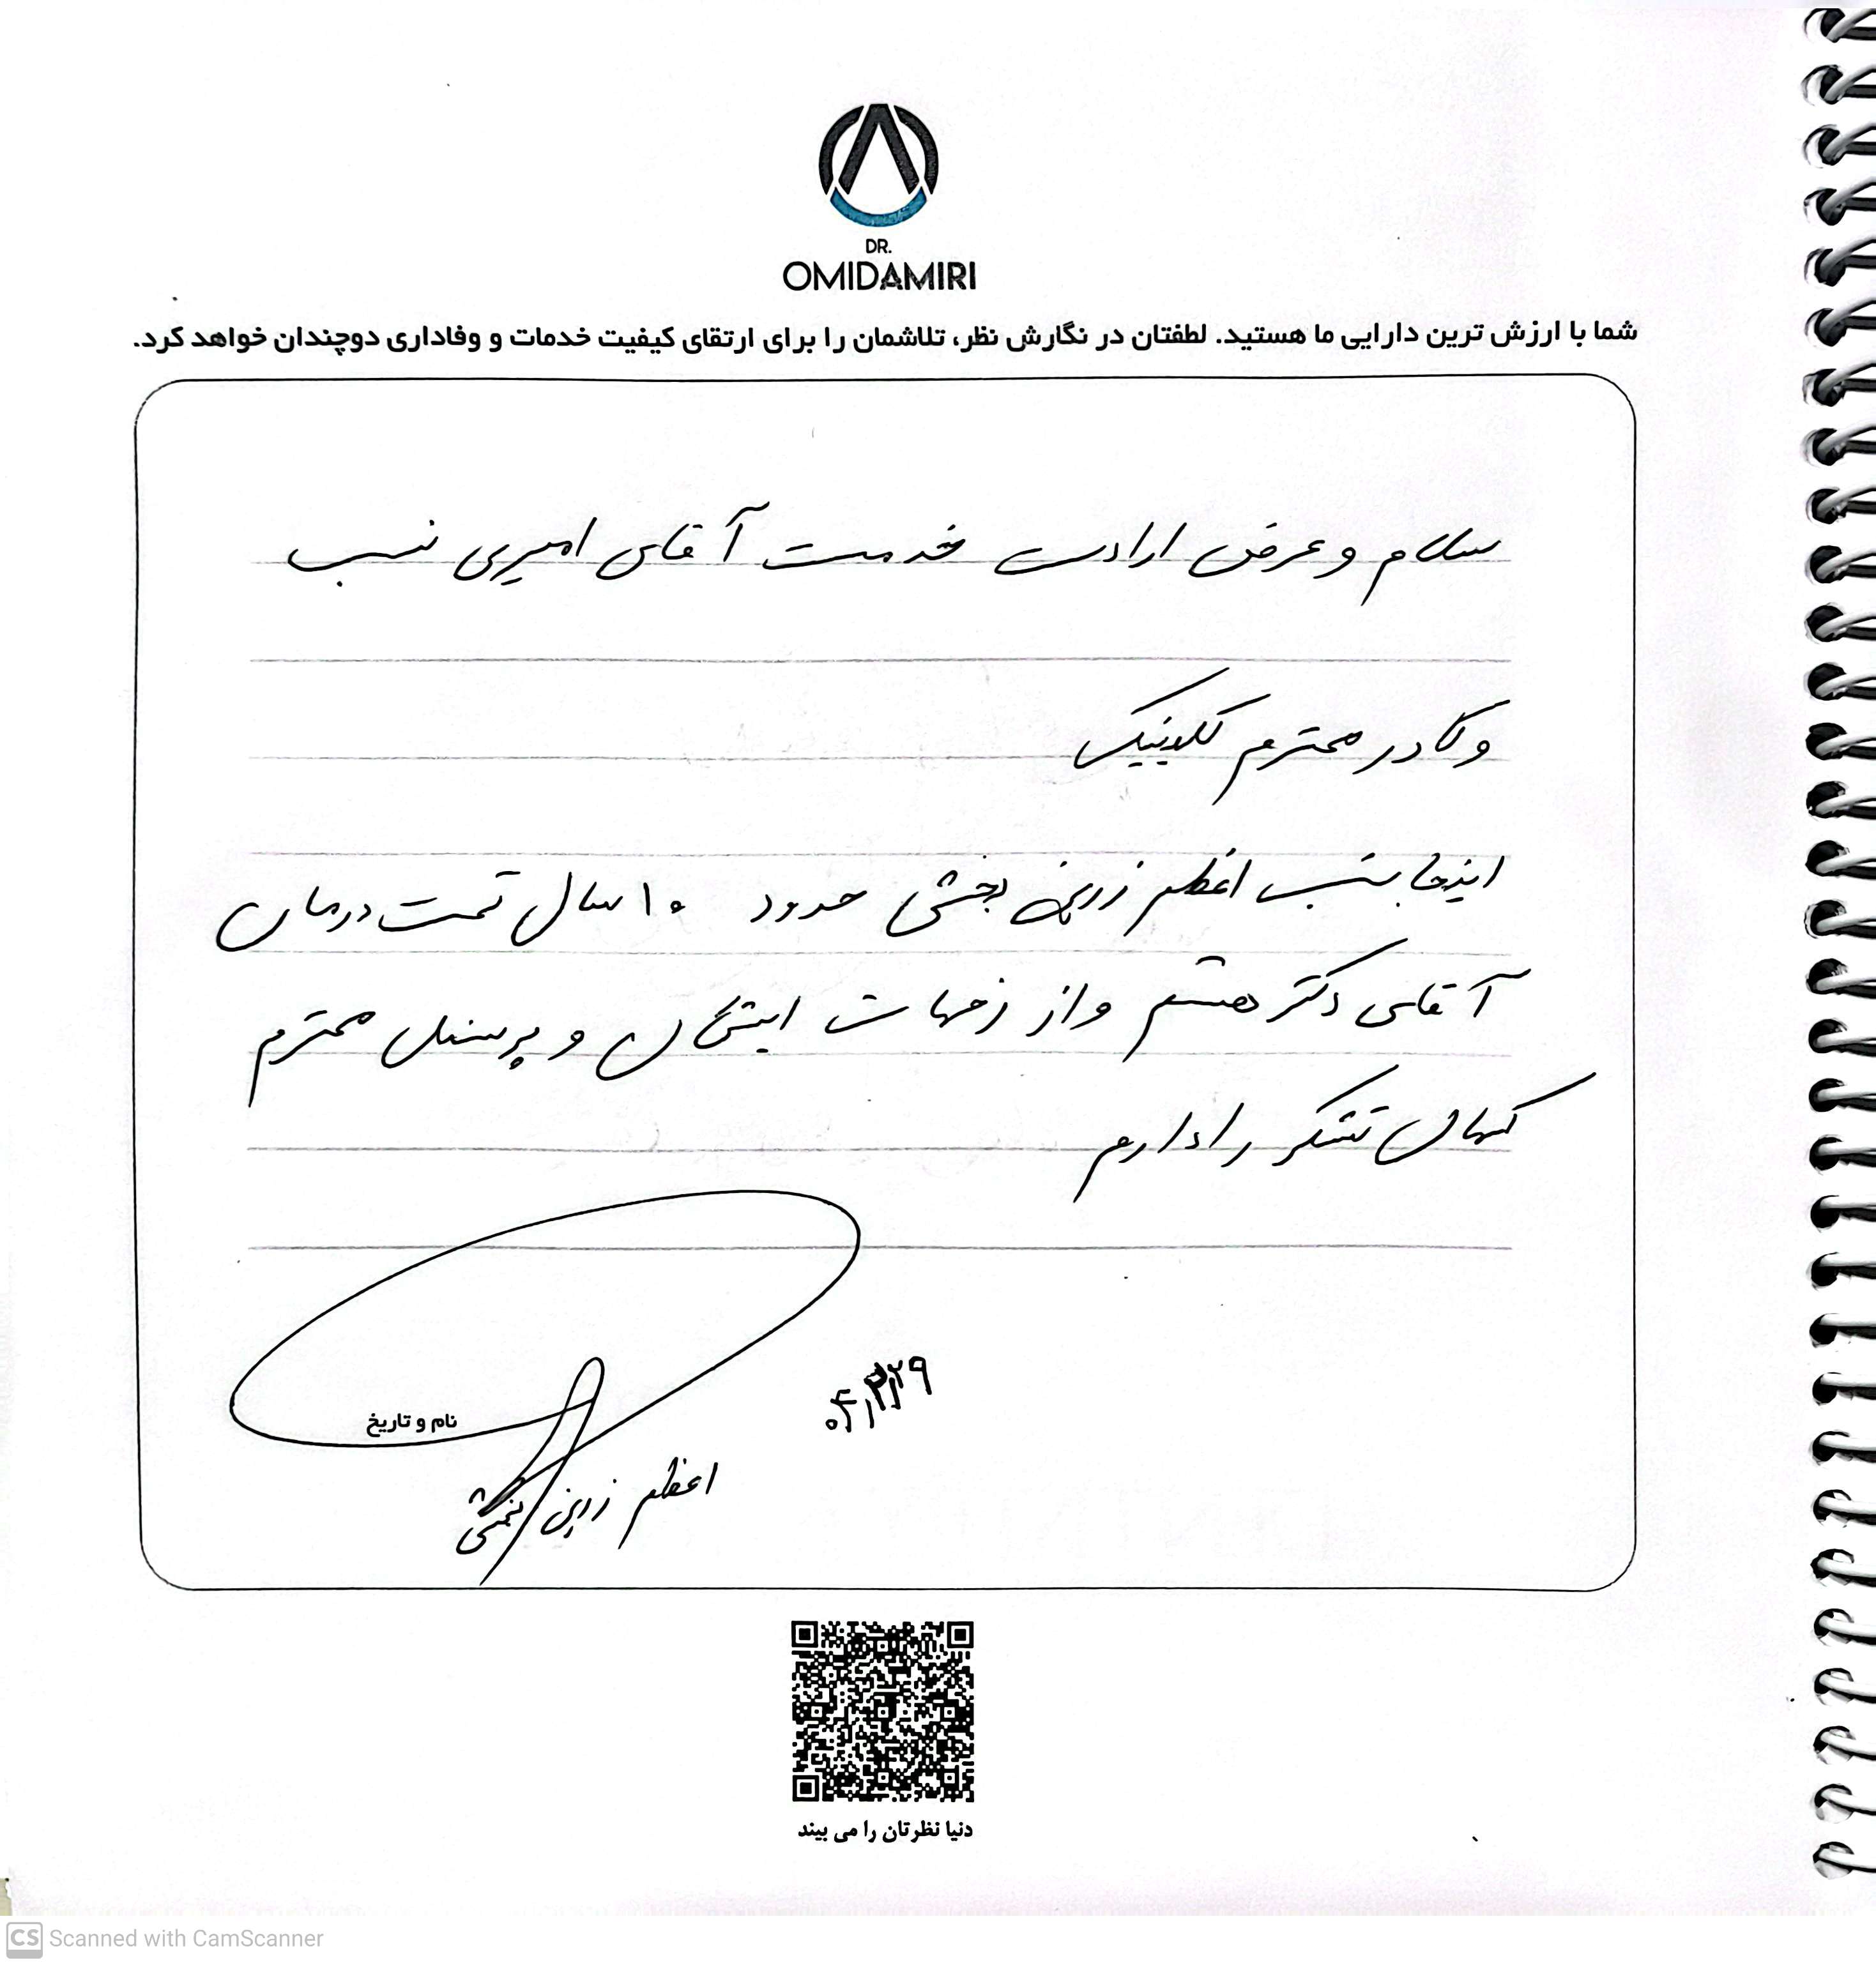 DR.
OMIDAMIRI
شما با ارزش ترین دارایی ما هستید. لطفتان در نگارش نظر، تلاشمان را برای ارتقای کیفیت خدمات و وفاداری دوچندان خواهد کرد.
سلام و عرض ارادت خدمت آقای امیری نسب
و کادر محترم کلینیک
اینجانب اعظم زرین بخشی حدود ۱۰ سال تحت درمان
آقای دکتر هستم و از زحمات ایشان و پرسنل محترم
کمال تشکر را دارم
نام و تاریخ
اعظم زرین بخشی
دنیا نظرتان را می بیند
CS Scanned with CamScanner